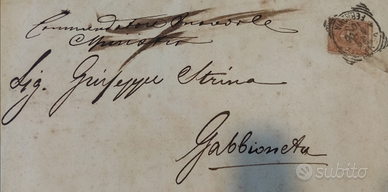 Commendatore Onorevole
Sig. Giuseppe Strina
Gabbioneta
subito